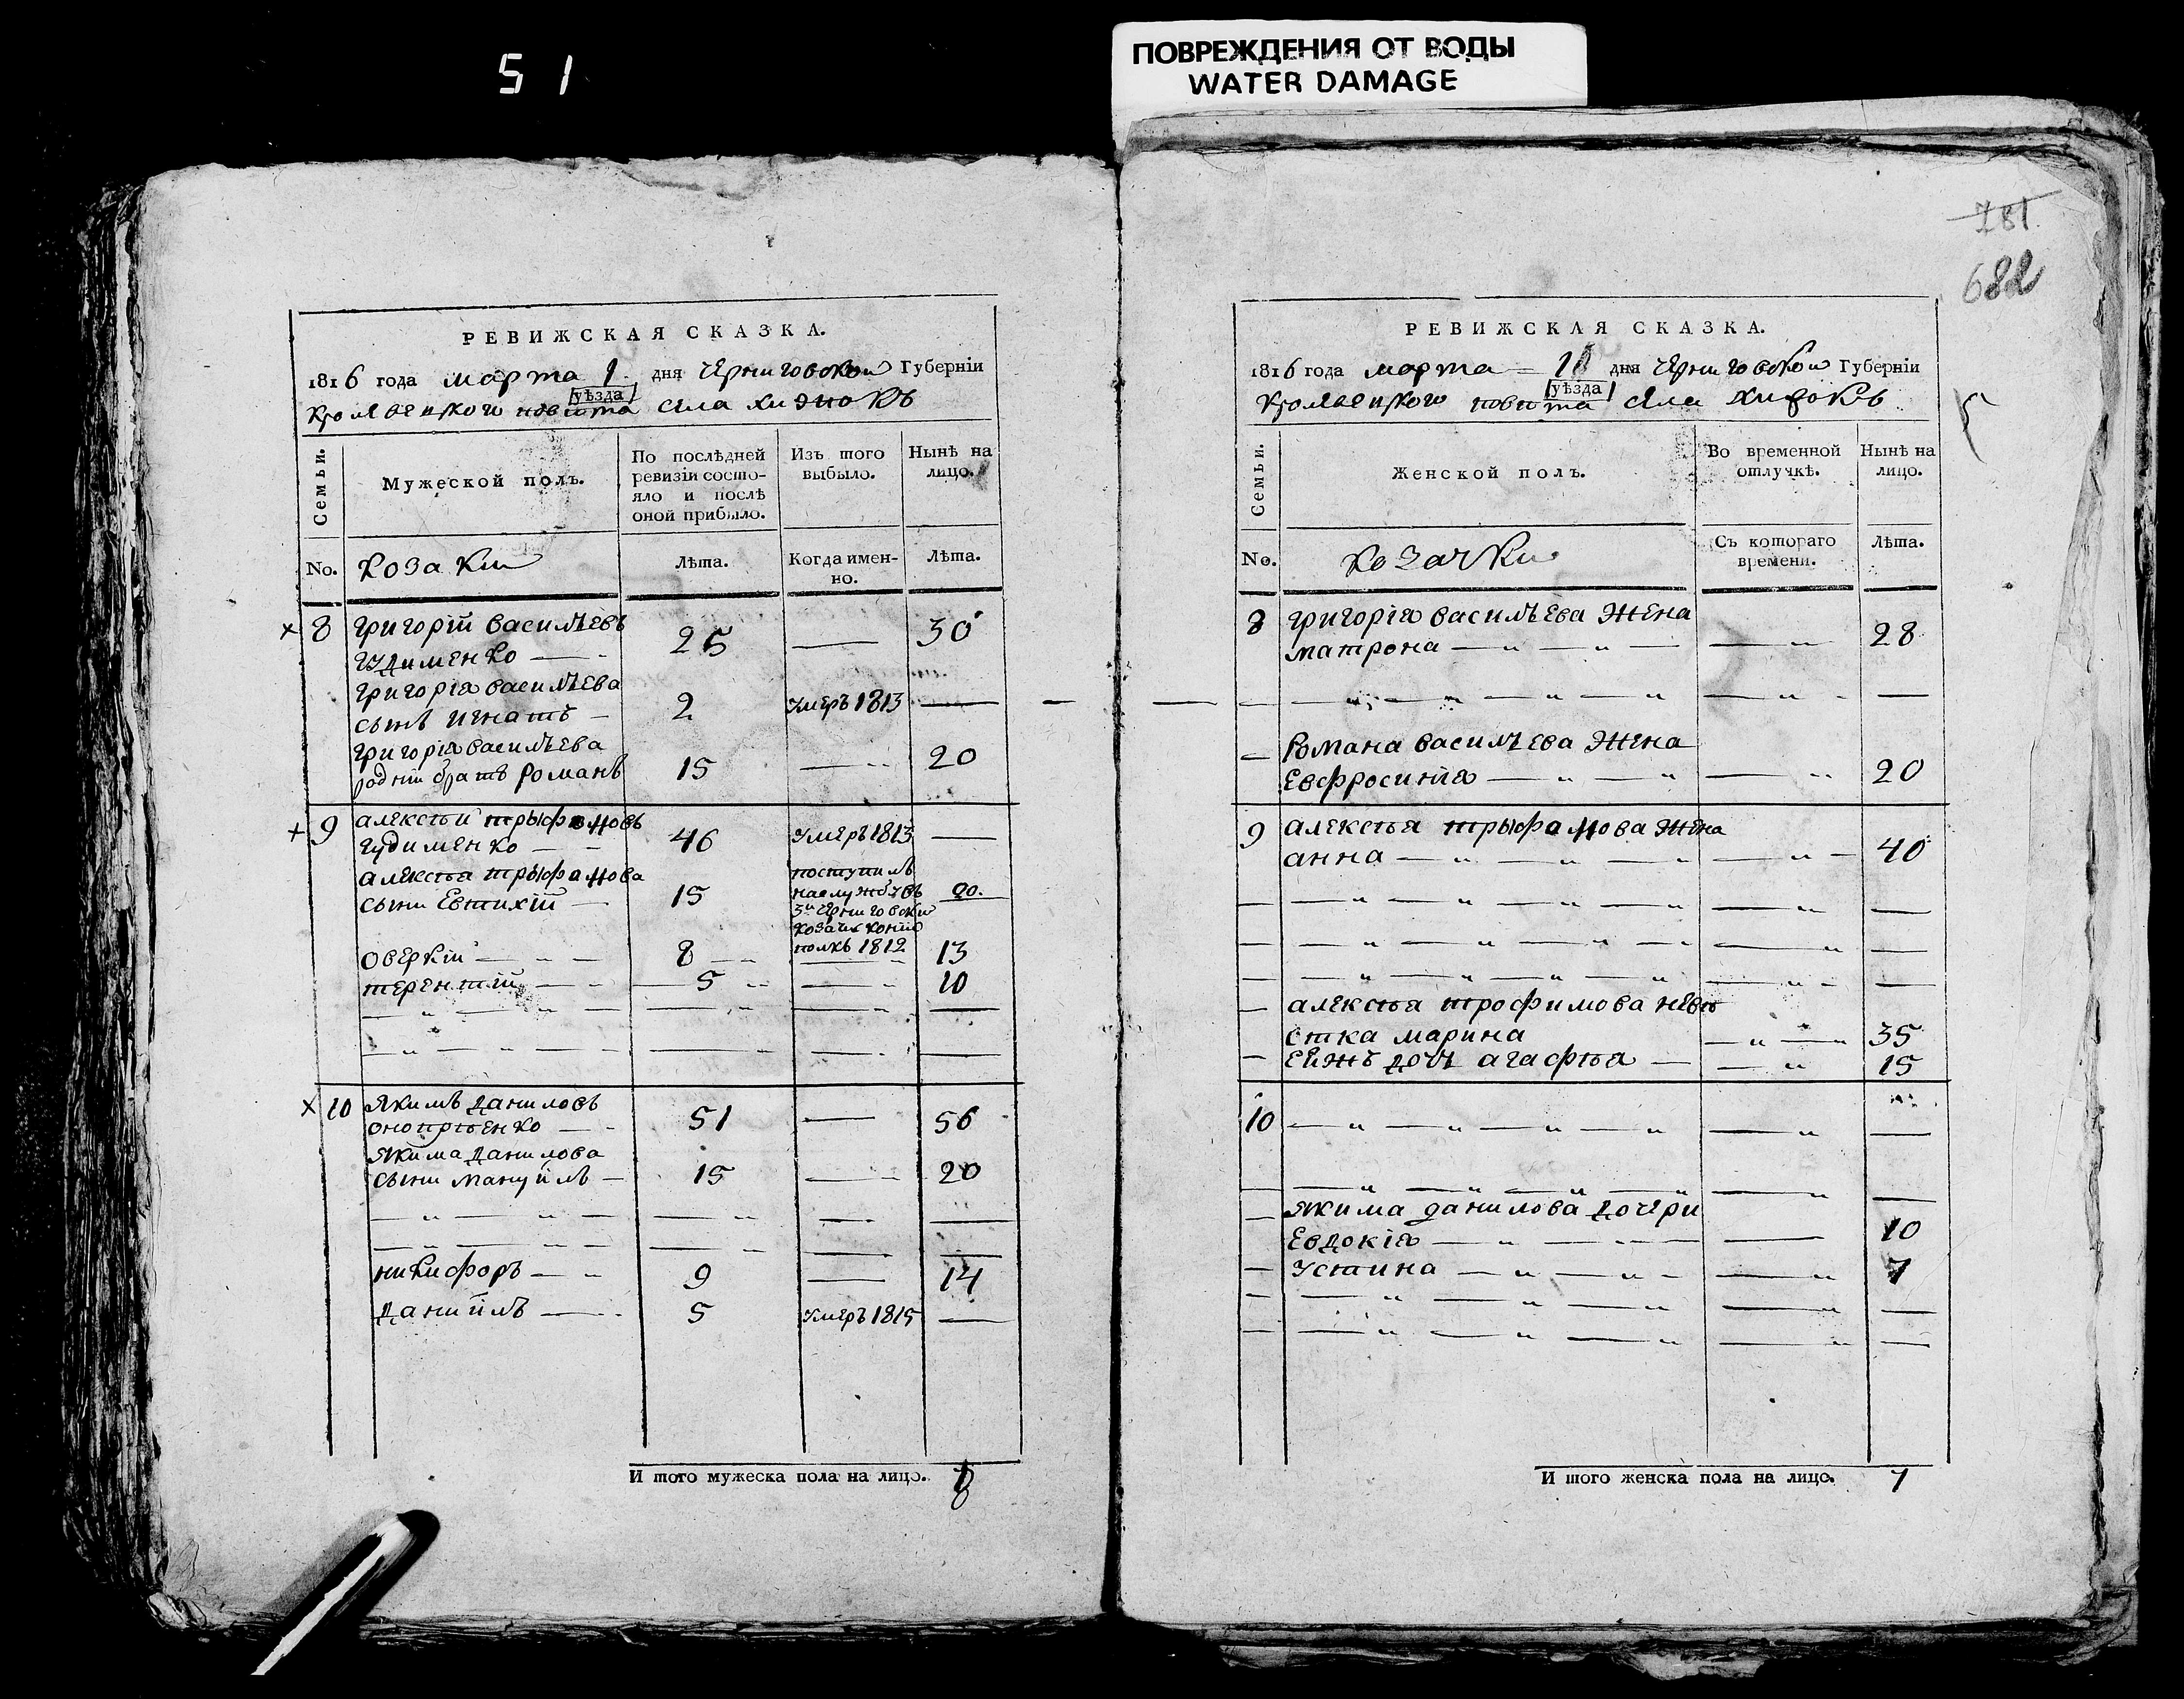 51
ПОВРЕЖДЕНИЯ ОТ ВОДЫ
WATER DAMAGE
РЕВИЖСКАЯ СКАЗКА.
1816 года марта 1 дня Черниговской Губерніи
уѣзда
Кролевецкого повѣта села
Семьи.
Мужеской полъ.
По послѣдней
ревизіи состо-
яло и послѣ
оной прибыло.
Изъ того
выбыло.
Нынѣ на
лицо.
No.
козаки
Лѣта.
Когда имен-
но.
Лѣта.
8 григорій василѣевъ
гудименко — 25 — 30
григорія василѣева
сынъ игнатъ — 2 умеръ 1813 —
григорія василѣева
родній братъ романъ 15 — 20
9 алексѣй
гудименко — 46 умеръ 1813 —
алексѣя
сыни Евтихій — 15 поступилъ
на службу въ 20.
3й черниговски
козач конній
полкъ 1812
оверкій — 8 — 13
терентій — 5 — 10
10 якимъ даниловъ
оноприенко — 51 — 56
якима данилова
сыни мануйлъ — 15 — 20
никифоръ — 9 — 14
даниилъ — 5 умеръ 1815 —
И того мужеска пола на лицо. 8
781
682
РЕВИЖСКАЯ СКАЗКА.
1816 года марта дня Черниговской Губерніи
уѣзда
Кролевецкого повѣта села
Семьи.
Женской полъ.
Во временной
отлучкѣ.
Нынѣ на
лицо.
No.
козачки
Съ котораго
времени.
Лѣта.
8 григорія василѣева жена
матрона — 28
романа василѣева жена
Евфросинія — 20
9 алексѣя жена
анна — 40
алексѣя трофимова невѣ
стка марина 35
Ейжъ дочъ агафѣя — 15
10
якима данилова дочери
Евдокія — 10
устина — 7
И того женска пола на лицо. 7